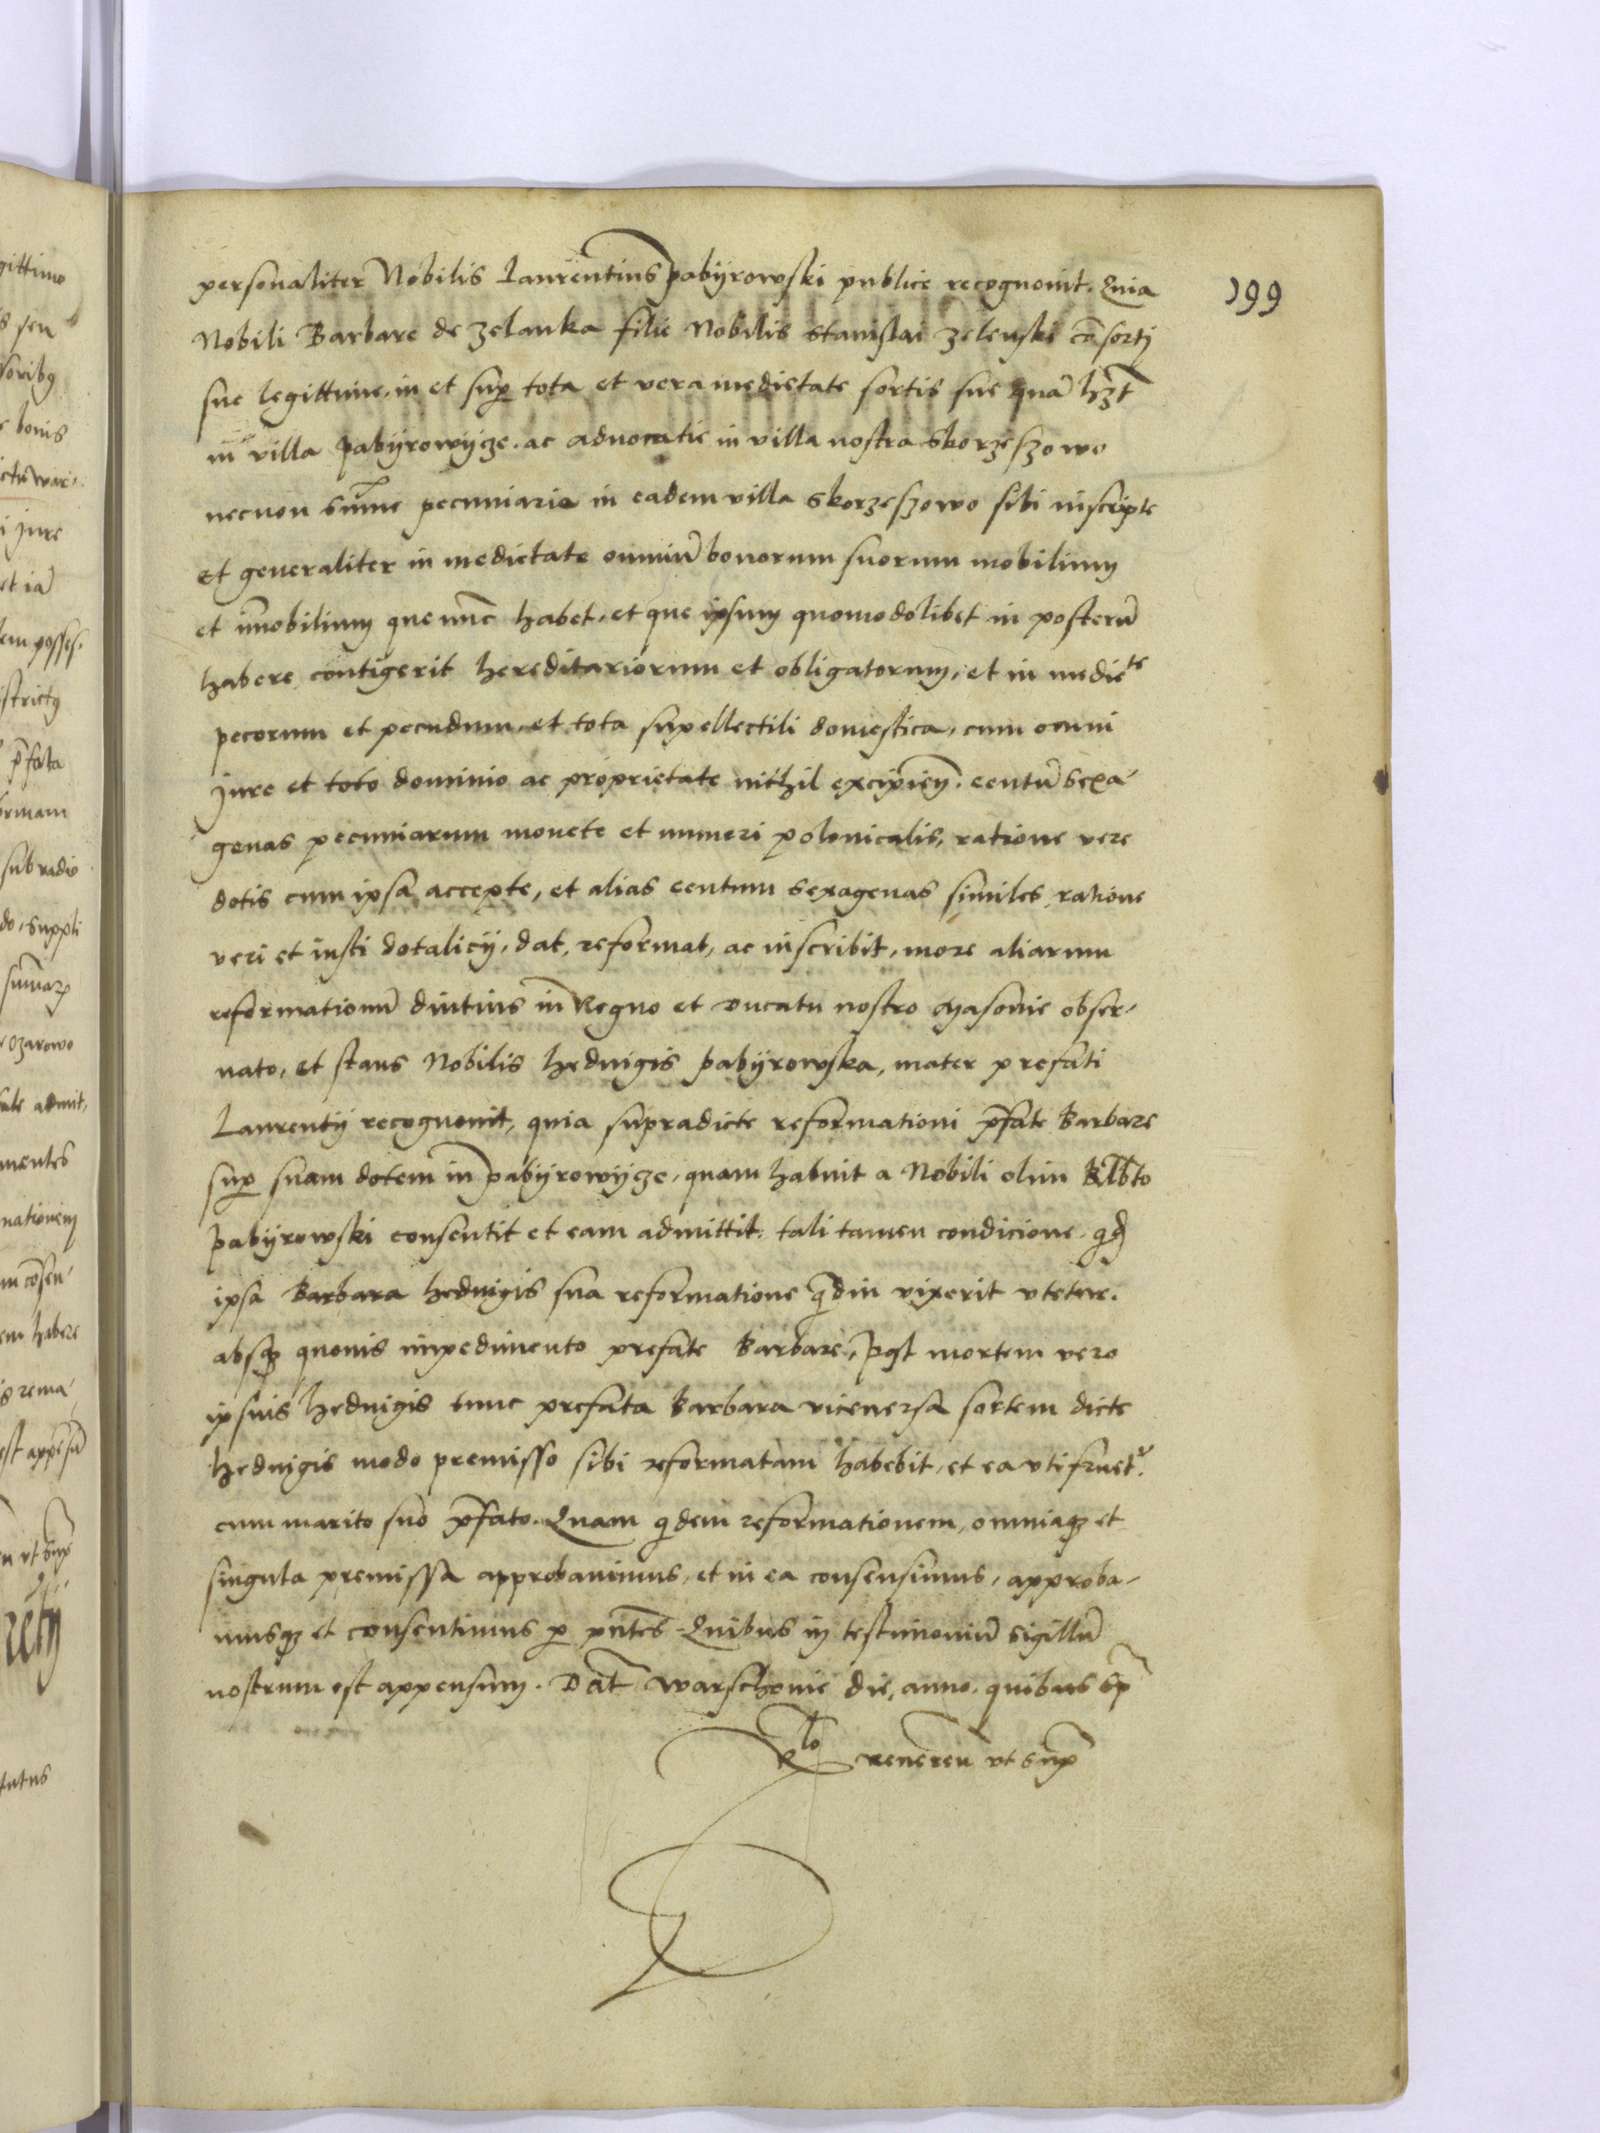 199
personaliter Nobilis Laurentius pabÿrowski publice recognovit. Quia
Nobili Barbare de zelanka filie Nobilis stanislai zelenski cōsorti
sue legittime, in et sup tota et vera medietate sortis sue quā hʒt
in villa pabÿrowÿcze. ac advocatie in villa nostra skorzeszowo
necnon sūme pecuniarie in eadem villa skorzeszowo sibi inscripte
et generaliter in medietate omniū bonorum suorum mobilium
et īmobilium que nūc habet, et que ipsum quomodolibet in posterū
habere contigerit hereditariorum et obligatorum, et in medieᵗᵉ
pecorum et pecudum, et tota supellectili domestica, cum omni
jure et toto dominio ac proprietate nithil excipien̄. centū sexa-
genas pecuniarum monete et numeri polonicalis, ratione vere
dotis cum ipsa accepte, et alias centum sexagenas similes ratione
veri et iusti dotalicij, dat, reformat, ac inscribit, more aliarum
reformationū diutius in Regno et ducatu nostro Masovie obser-
uato, et stans Nobilis hedvigis pabÿrowska, mater prefati
Laurentij recognovit, quia supradicte reformationi p̄fate Barbare
sup suam dotem in pabÿrowÿcze, quam habuit a Nobili olim Alb̄to
pabÿrowski consentit et eam admittit, tali tamen condicione, qd
ipsa Barbara hedvigis sua reformatione q̄diu vixerit vtetur.
absq quovis impedimento prefate Barbare, Post mortem vero
ipsius hedvigis tunc prefata Barbara viceversa sortem dicte
hedvigis modo premisso sibi reformatam habebit, et ea vtifruet.
cum marito suo p̄fato. Quam qdem reformationem, omniaqʒ et
singula premissa approbavimus, et in ea consensimus, approba-
musqʒ et consentimus p pn̄tes. Quibus in testimoniū sigillū
nostrum est appensum. Dat̄ Warschovie die, anno, quibus sp̄
Rlo reveren̄ vt sup̄